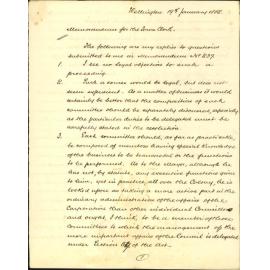 Wellington 19th January 1882.
Memorandum for the Town Clerk.
The following are my replies to questions
submitted to me in Memorandum No 237.
1. I see no legal objection to such a
proceeding.
2. Such a course would be legal, but does not
seem expedient. As a matter of business it would
certainly be better that the composition of each
committee should be separately discussed, especially
as the particular duties to be delegated must be
carefully stated in the resolution.
3. Each committee should, as far as practicable,
be composed of members having special knowledge
of the business to be transacted or the functions
to be performed. As to the Mayor, although he
has not, by statute, any executive functions given
to him, yet in practice, all over the Colony, he is
looked upon as taking a more active part in the
ordinary administration of the affairs of the
Corporation than other individual Committee
and ought, I think, to be a member of those
Committees to which the management of the
more important affairs of the Council is delegated
under Section of the Act.
1